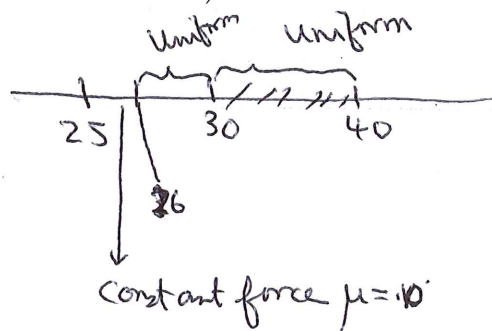 uniform uniform
25 30 40
26
Constant force μ=.10